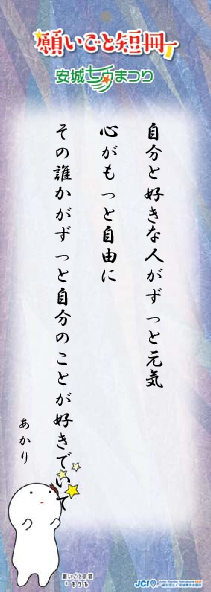 願いごと短冊
安城七夕まつり
自分と好きな人がずっと元気
心がもっと自由に
その誰かがずっと自分のことが好きでいて
あかり
願いごと短冊
JCI